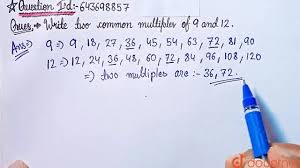 ☆Question Id:- 643698857
Ques. Write two common multiples of 9 and 12.
Ans:) 9 ⇒ 9, 18, 27, 36, 45, 54, 63, 72, 81, 90
12 ⇒ 12, 24, 36, 48, 60, 72, 84, 96, 108, 120
⇒ two multiples are :- 36, 72.
doubtnut